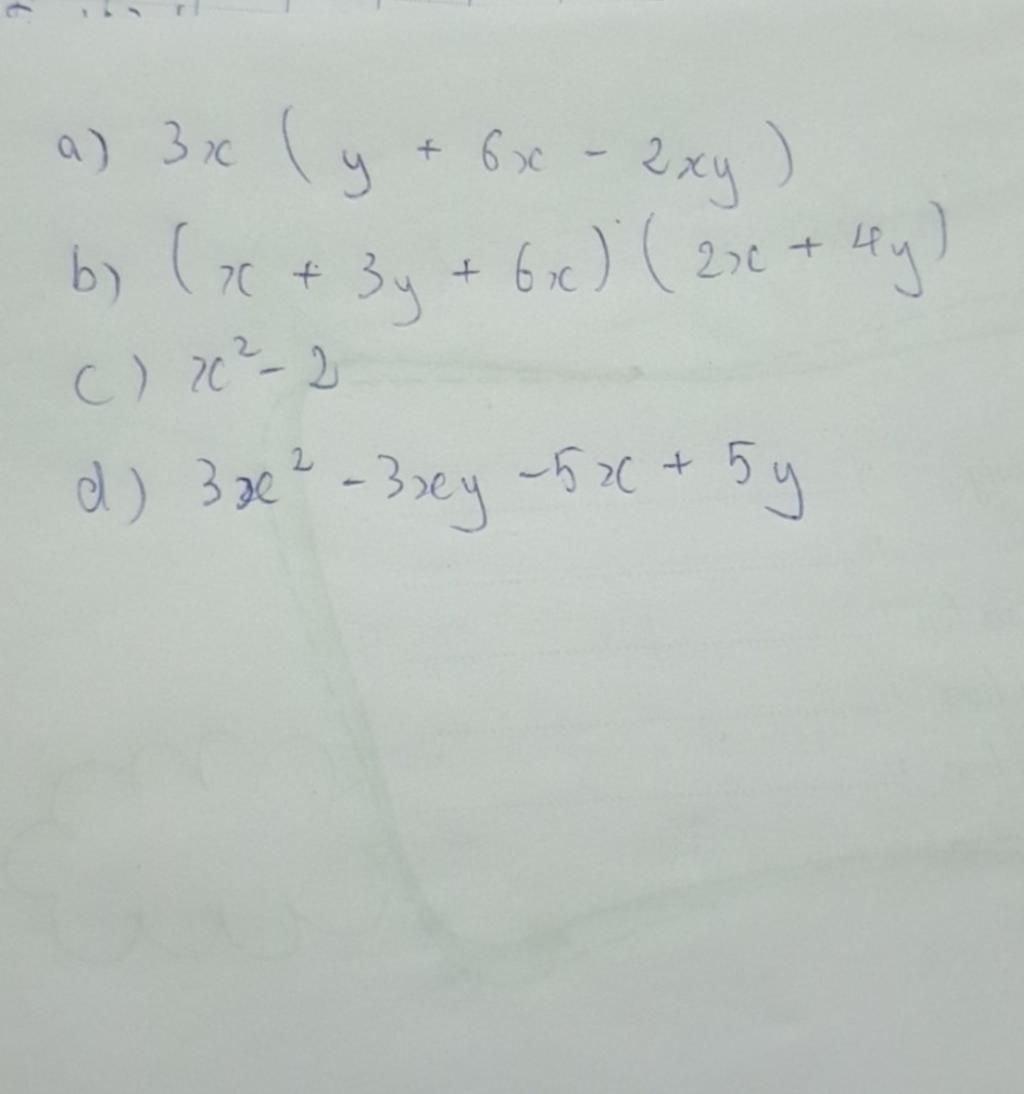 a) 3x ( y + 6x - 2xy )
b) (x + 3y + 6x) (2x + 4y)
c) x² - 2
d) 3x² - 3xy - 5x + 5y